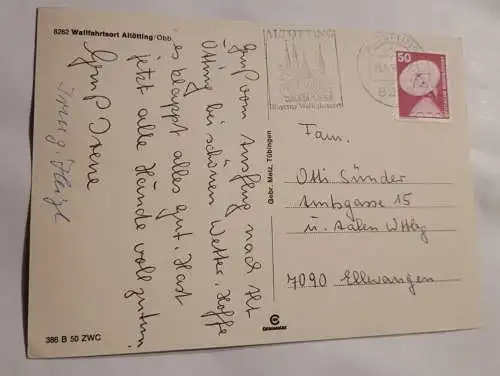 8262 Wallfahrtsort Altötting/Obb.
Gruß vom Ausflug nach Alt
Ötting bei schönem Wetter. Hoffe
es klappt alles gut. Hast
jetzt alle Hände voll zu tun.
Gruß Irene
386 B 50 ZWC
Gebr. Metz, Tübingen
ALTÖTTING
Bayerns Wallfahrtsort
50
Fam.
Otti Sünder
Amtsgasse 15
u. Aalen Wttbg
7090 Ellwangen